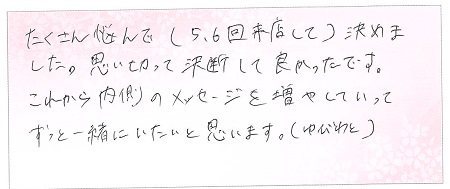 たくさん悩んで(5、6回来店して)決めま
した。思い切って決断して良かったです。
これから内側のメッセージを増やしていって
ずっと一緒にいたいと思います。(ゆびわと)